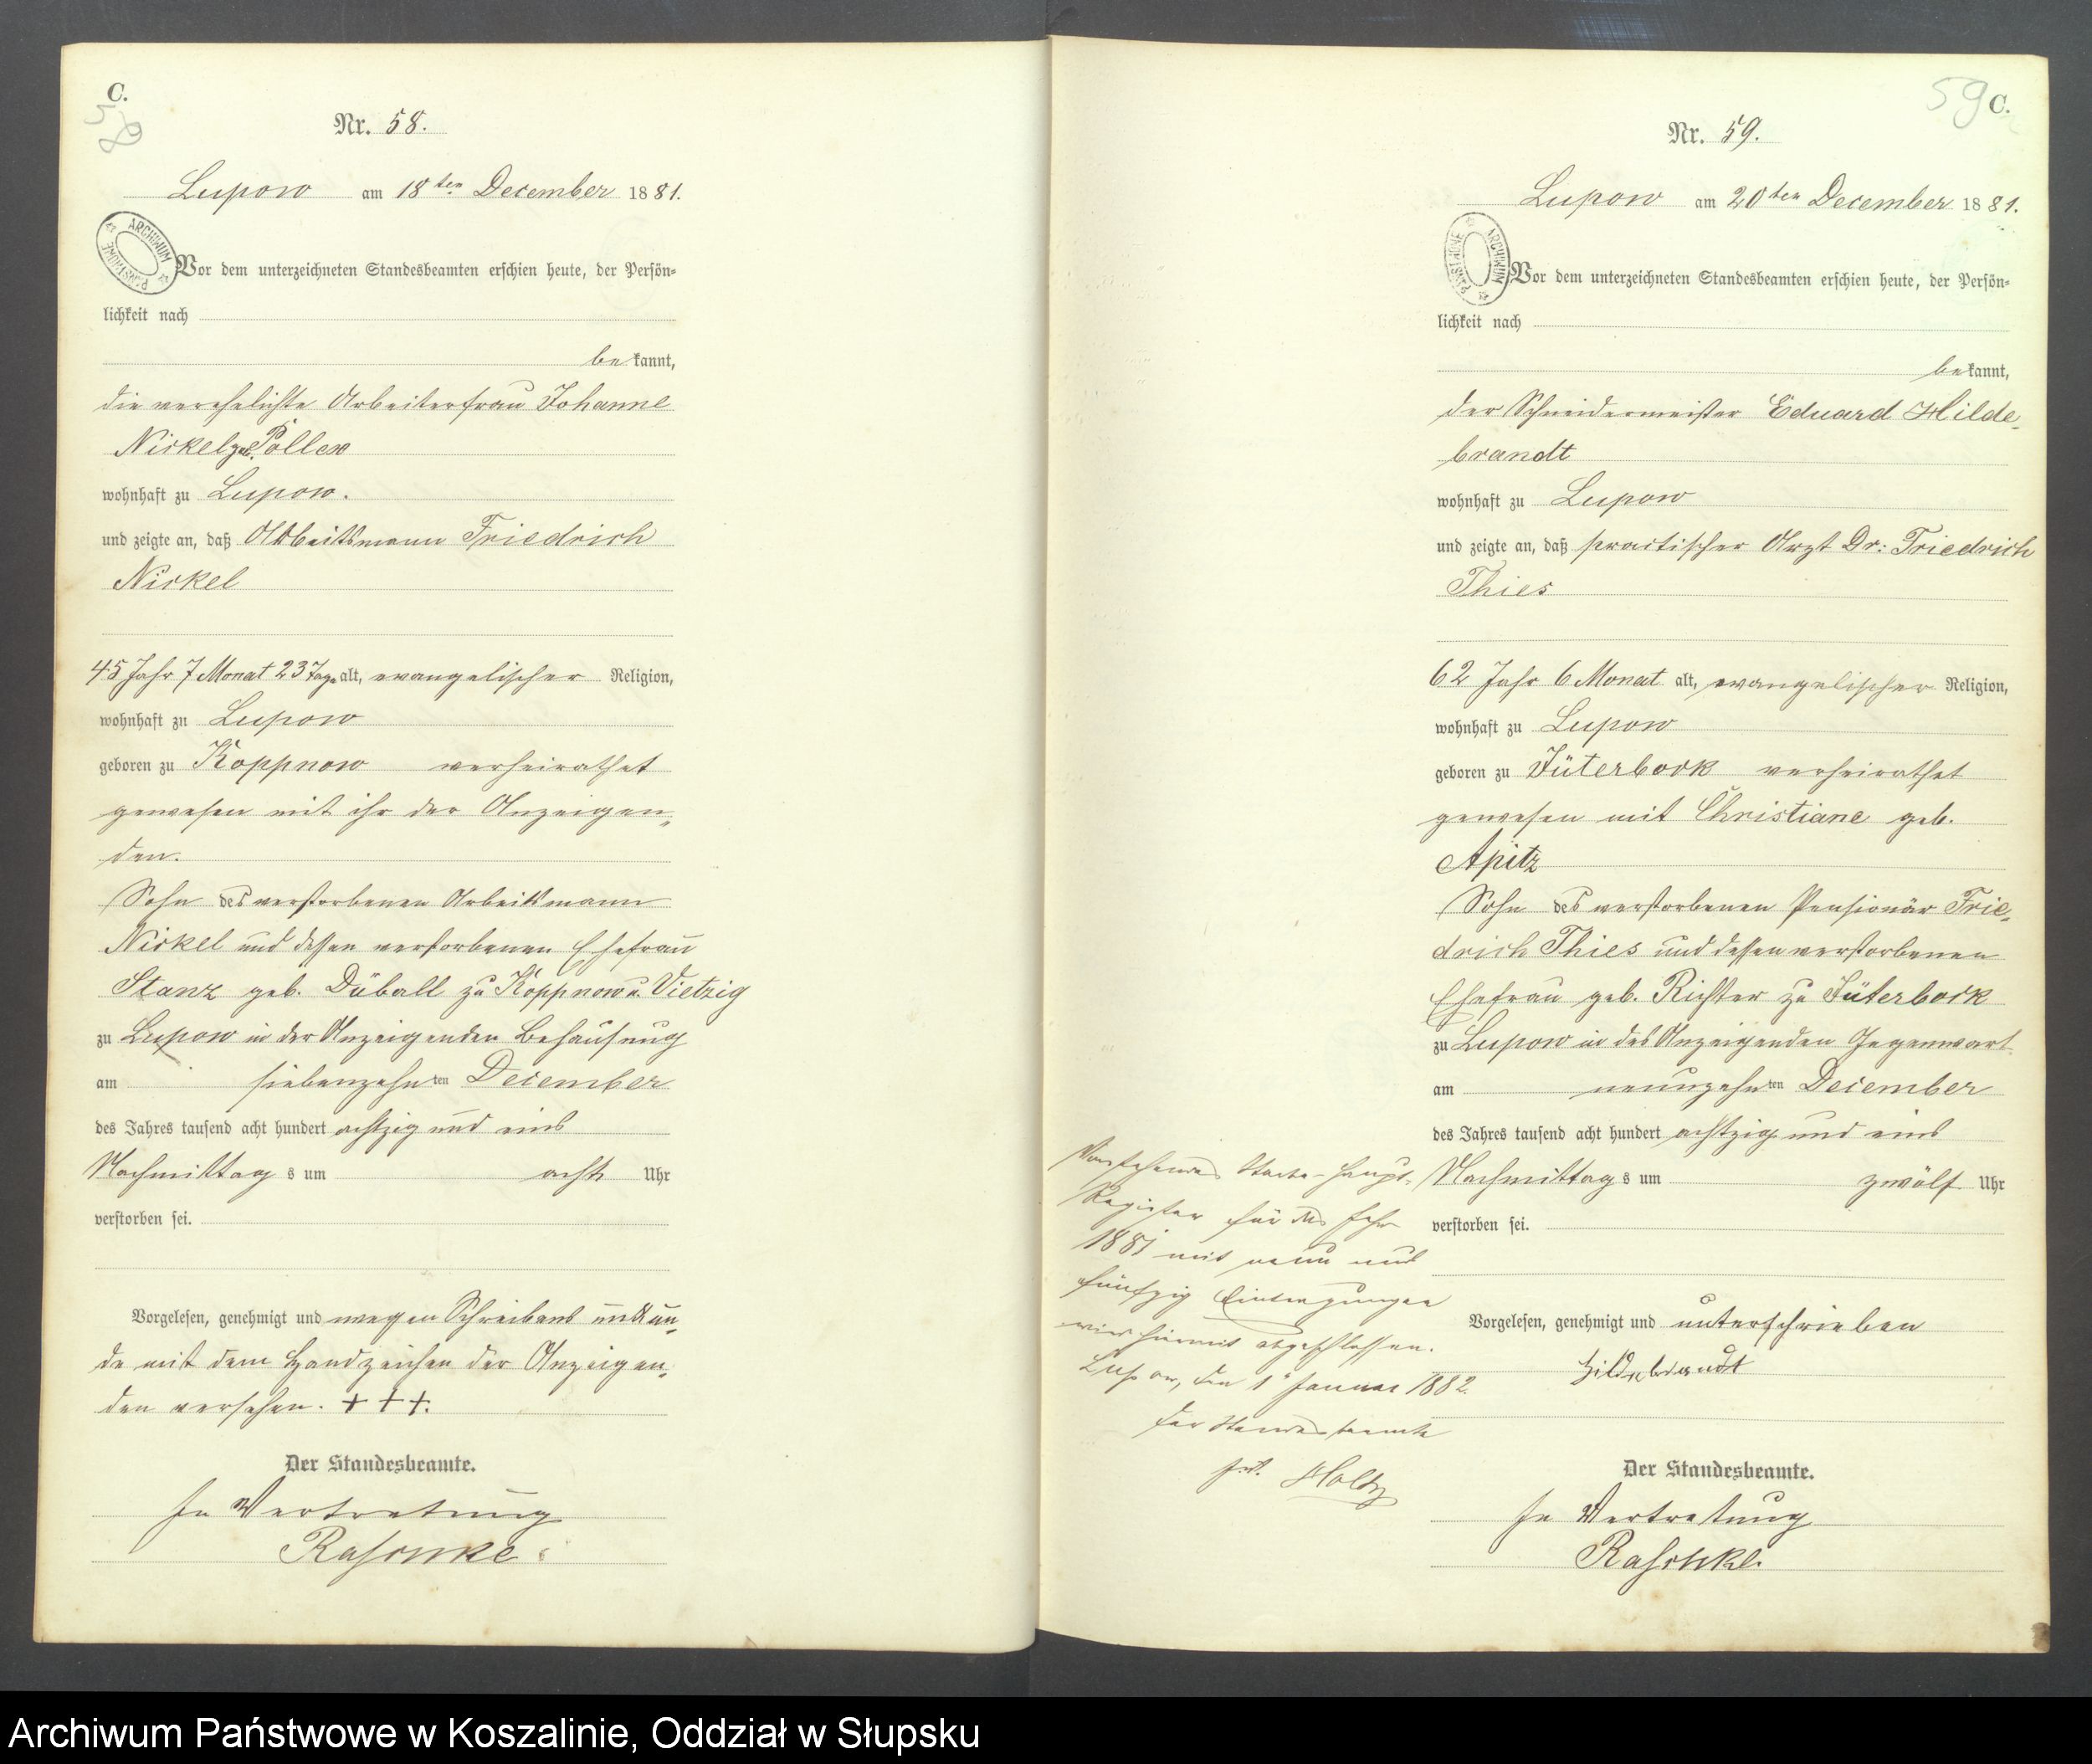 C.
58
Nr. 58.
Lupow am 18ten December 1881.
ARCHIWUM PAŃSTWOWE
Vor dem unterzeichneten Standesbeamten erschien heute, der Persön=
lichkeit nach
bekannt,
die verehelichte Arbeiterfrau Johanne
Nickel geb. Pollex
wohnhaft zu Lupow.
und zeigte an, daß Arbeitsmann Friedrich
Nickel
45 Jahr 7 Monat 23 Tage alt, evangelischer Religion,
wohnhaft zu Lupow
geboren zu Koppnow verheirathet
gewesen mit ihr der Anzeigen=
den.
Sohn des verstorbenen Arbeitsmann
Nickel und dessen verstorbenen Ehefrau
Stanz geb. Düball zu Koppnow u. Vietzig
zu Lupow in der Anzeigenden Behausung
am siebenzehnten December
des Jahres tausend acht hundert achtzig und eins
Nachmittags um acht Uhr
verstorben sei.
Vorgelesen, genehmigt und wegen Schreibens unkun=
de mit dem Handzeichen der Anzeigen=
den versehen. +++.
Der Standesbeamte.
In Vertretung
Raschke
59 C.
Nr. 59.
Lupow am 20ten December 1881.
ARCHIWUM PAŃSTWOWE
Vor dem unterzeichneten Standesbeamten erschien heute, der Persön=
lichkeit nach
bekannt,
der Schneidermeister Eduard Hilde=
brandt
wohnhaft zu Lupow
und zeigte an, daß practischer Arzt Dr: Friedrich
Thies
62 Jahr 6 Monat alt, evangelischer Religion,
wohnhaft zu Lupow
geboren zu Jüterbock verheirathet
gewesen mit Christiane geb.
Apitz
Sohn des verstorbenen Pensionär Frie=
drich Thies und dessen verstorbenen
Ehefrau geb. Richter zu Jüterbock
zu Lupow in des Anzeigenden Gegenwart
am neunzehnten December
des Jahres tausend acht hundert achtzig und eins
Nachmittags um zwölf Uhr
verstorben sei.
Vorgelesen, genehmigt und unterschrieben
Hildebrandt
Der Standesbeamte.
In Vertretung
Raschke.
Vorstehendes Sterbe-Haupt-
Register für das Jahr
1881 mit neun und
fünfzig Eintragungen
wird hiermit abgeschlossen.
Lupow, den 1t Januar 1882.
Der Standesbeamte
Holtz
Archiwum Państwowe w Koszalinie, Oddział w Słupsku